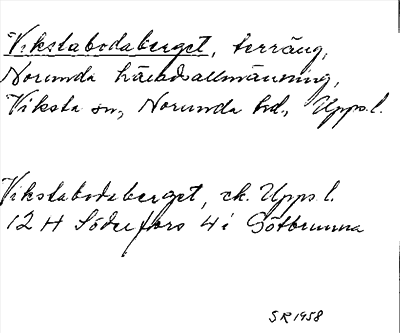 Vikstabodaberget, terräng,
Norunda häradsallmänning,
Viksta sn, Norunda hd., Upps.l.
Vikstabodaberget, ek. Upps. l.
12 H Söderfors 4 i Götbrunna
SR 1958